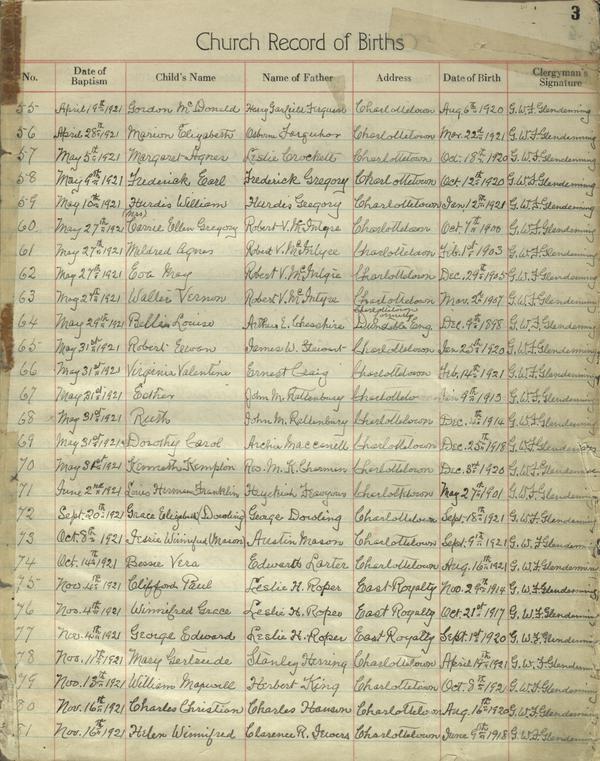 3
Church Record of Births
No. Date of Baptism Child's Name Name of Father Address Date of Birth Clergyman's Signature
55 April 19th 1921 Gordon McDonald Harry Garfield Ferguson Charlottetown Aug 6th 1920 G.W.F. Glendenning
56 April 28th 1921 Marion Elizabeth Osborne Ferguson Charlottetown Mar. 22nd 1921 G.W.F. Glendenning
57 May 5th 1921 Margaret Agnes Leslie Crockett Charlottetown Oct. 18th 1920 G.W.F. Glendenning
58 May 9th 1921 Frederick Earl Frederick Gregory Charlottetown Oct. 12th 1920 G.W.F. Glendenning
59 May 10th 1921 Hurdis William Hurdis Gregory Charlottetown Jan. 12th 1921 G.W.F. Glendenning
60 May 27th 1921 (Mrs) Carrie Ellen Gregory Robert V. McIntyre Charlottetown Oct. 7th 1900 G.W.F. Glendenning
61 May 27th 1921 Mildred Agnes Robert V. McIntyre Charlottetown Feb. 1st 1903 G.W.F. Glendenning
62 May 27th 1921 Eva May Robert V. McIntyre Charlottetown Dec. 29th 1905 G.W.F. Glendenning
63 May 27th 1921 Walter Vernon Robert V. McIntyre Charlottetown Mar. 1907 G.W.F. Glendenning
64 May 29th 1921 Louise Arthur E. Cheshire Charlottetown Formerly Dunstable Eng. Dec. 9th 1898 G.W.F. Glendenning
65 May 31st 1921 Robert James W. Stewart Charlottetown Jan. 25th 1920 G.W.F. Glendenning
66 May 31st 1921 Virginia Valentine Ernest Craig Charlottetown Feb. 14th 1921 G.W.F. Glendenning
67 May 31st 1921 Esther John M. Rattenbury 9th 1913 G.W.F. Glendenning
68 May 31st 1921 Ruth John M. Rattenbury Charlottetown Dec. 1914 G.W.F. Glendenning
69 May 31st 1921 Dorothy Carol Archie Charlottetown Dec. 25th 1918 G.W.F. Glendenning
70 May 31st 1921 Kenneth Kempton Charlottetown Dec. 8th 1920 G.W.F. Glendenning
71 June 2nd 1921 Louis Herman Franklin Charlottetown May 27th 1901 G.W.F. Glendenning
72 Sept. 20th 1921 Grace Elizabeth Dowling George Dowling Charlottetown Sept. 18th 1921 G.W.F. Glendenning
73 Oct. 8th 1921 Jessie Winnifred Mason Austin Mason Charlottetown Sept. 9th 1921 G.W.F. Glendenning
74 Oct. 14th 1921 Bessie Vera Edward Larter Charlottetown Aug. 16th 1921 G.W.F. Glendenning
75 Nov. 4th 1921 Clifford Paul Leslie H. Roper East Royalty Nov. 29th 1914 G.W.F. Glendenning
76 Nov. 4th 1921 Winnifred Grace Leslie H. Roper East Royalty Oct. 21st 1917 G.W.F. Glendenning
77 Nov. 4th 1921 George Edward Leslie H. Roper East Royalty Sept. 19th 1920 G.W.F. Glendenning
78 Nov. 11th 1921 Mary Gertrude Stanley Herring Charlottetown April 17th 1921 G.W.F. Glendenning
79 Nov. 13th 1921 William Maxwell Herbert King Charlottetown Oct. 8th 1921 G.W.F. Glendenning
80 Nov. 16th 1921 Charles Christian Charles Hanson Charlottetown Aug. 16th 1920 G.W.F. Glendenning
81 Nov. 16th 1921 Helen Winnifred Clarence R. Charlottetown June 9th 1918 G.W.F. Glendenning